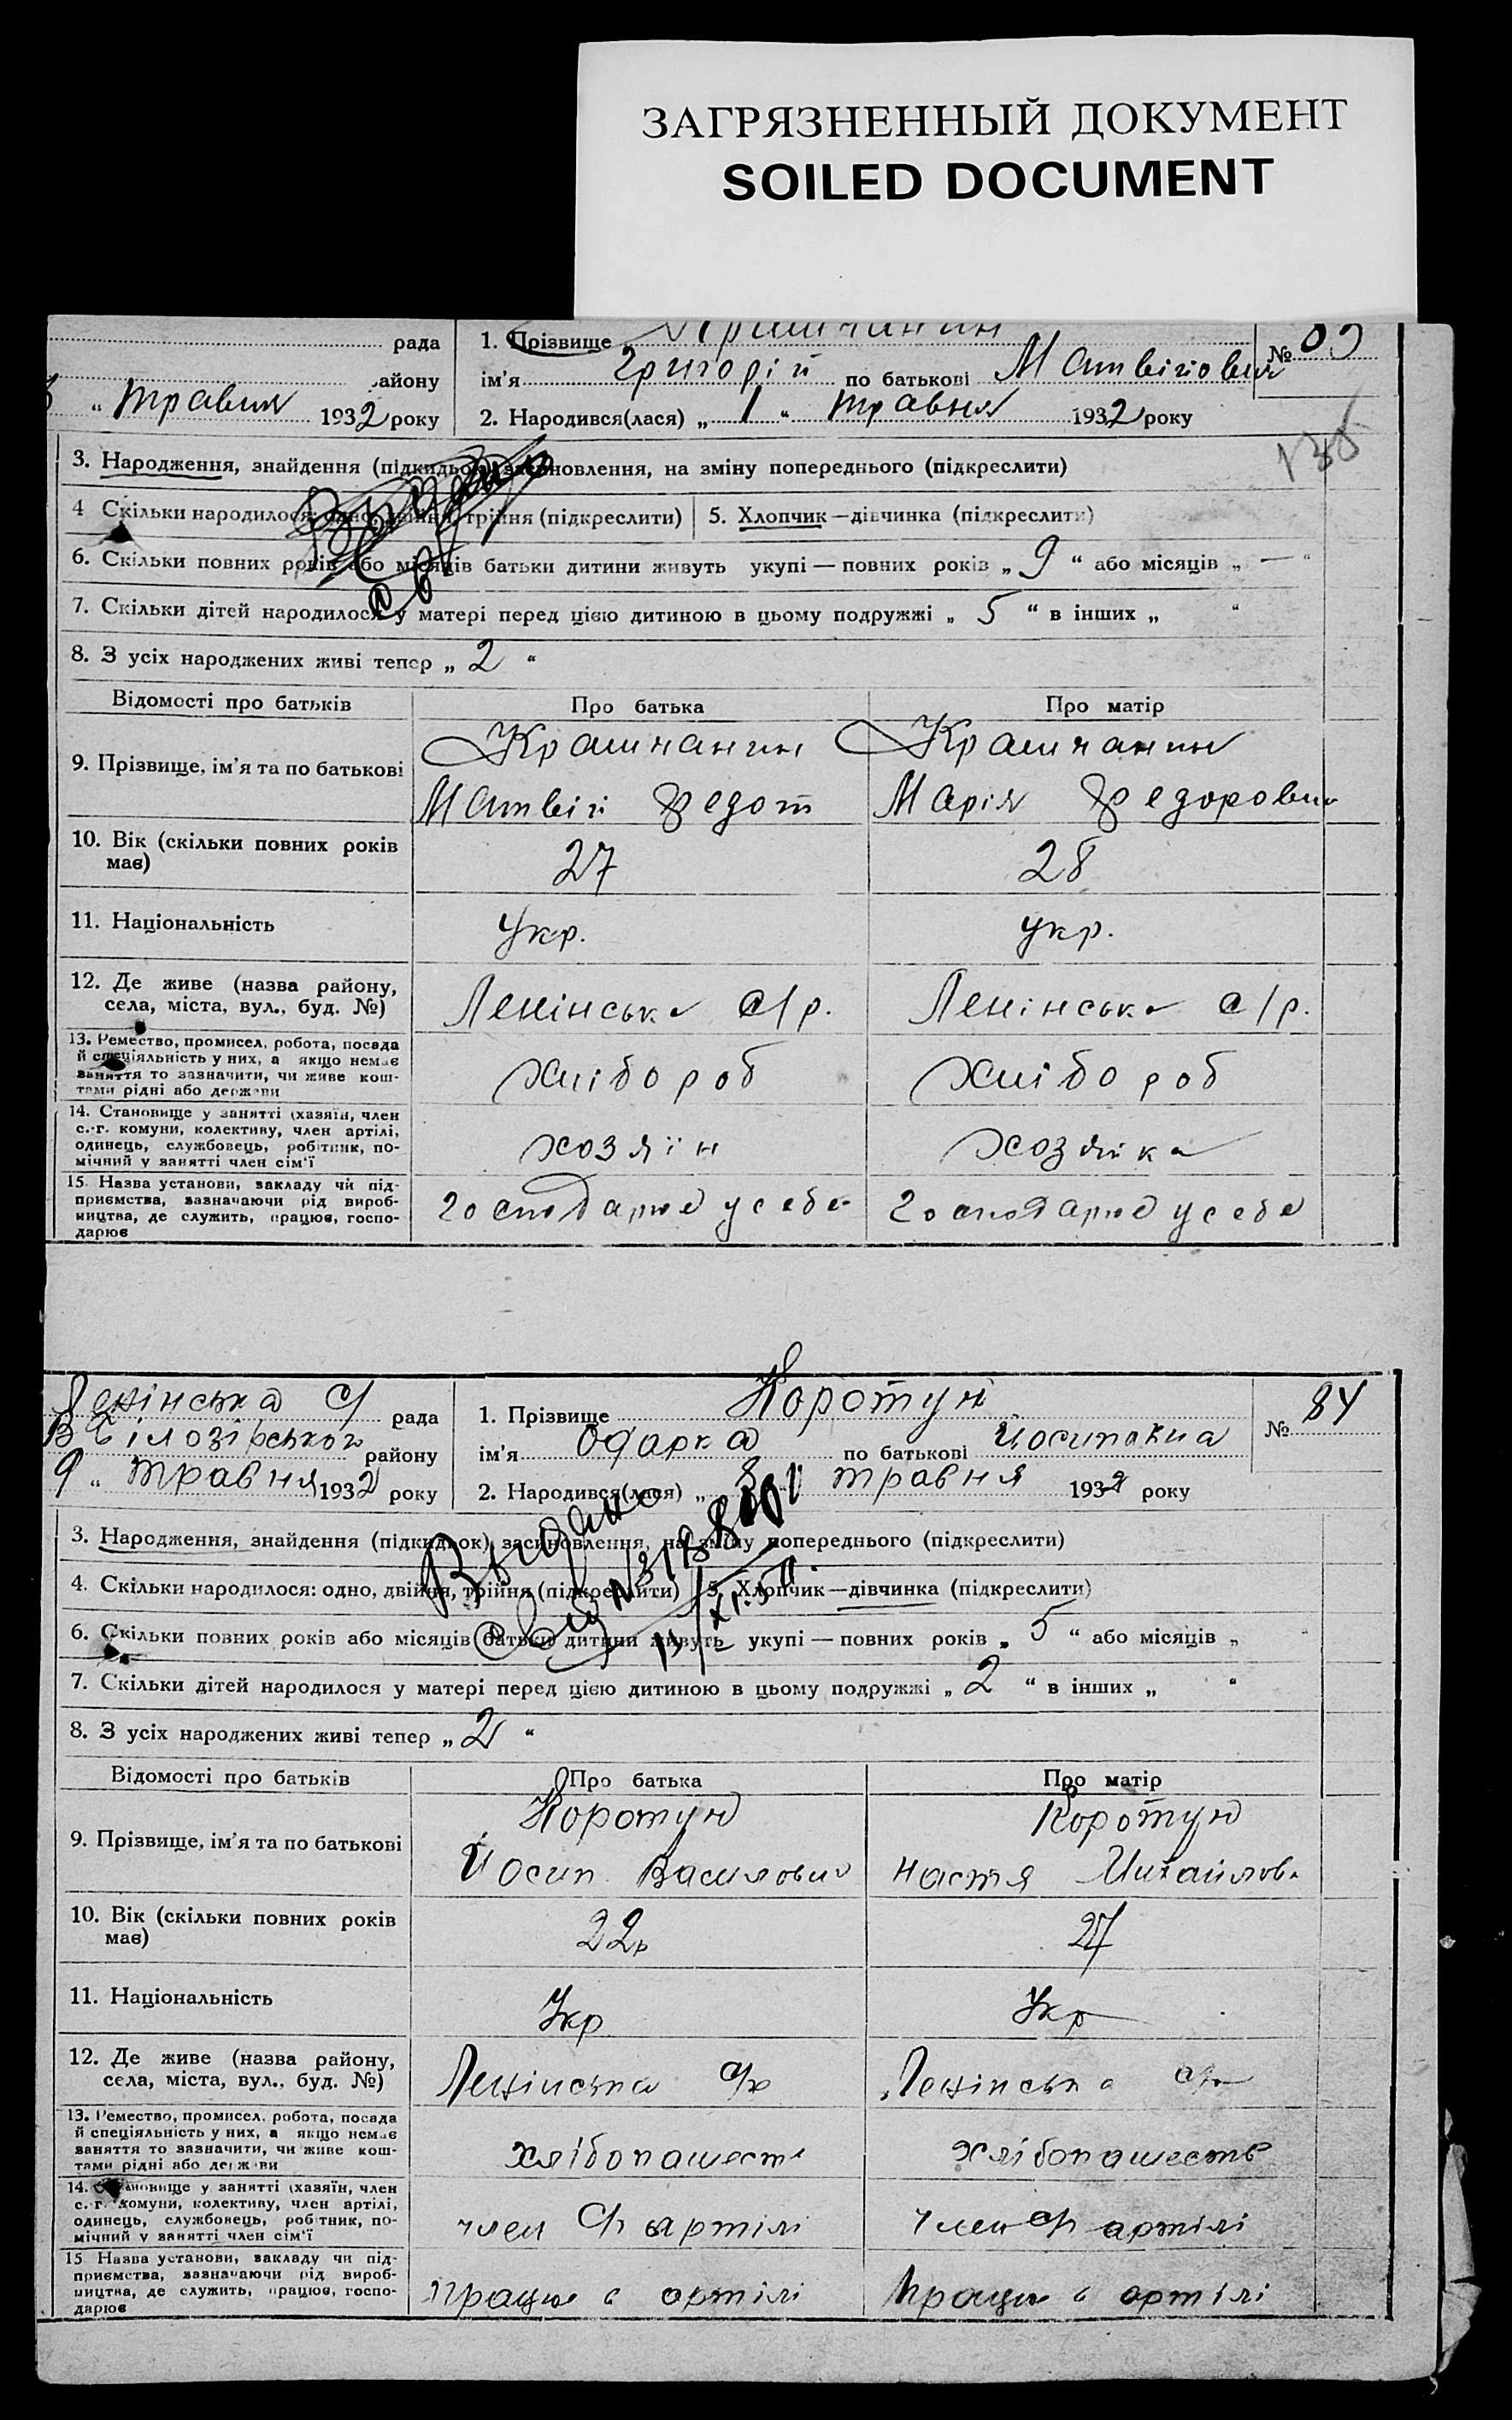 ЗАГРЯЗНЕННЫЙ ДОКУМЕНТ
SOILED DOCUMENT
рада
1. Прізвище
№ 83
району
ім'я Григорій по батькові Матвійович
„ травня 1932 року
2. Народився(лася) „ 1 “ травня 1932 року
138
3. Народження, знайдення (підкидьок), засиновлення, на зміну попереднього (підкреслити)
4 Скільки народилося: одно, двійня, трійня (підкреслити)
5. Хлопчик—дівчинка (підкреслити)
6. Скільки повних років або місяців батьки дитини живуть укупі — повних років „ 9 “ або місяців „ — “
7. Скільки дітей народилося у матері перед цією дитиною в цьому подружжі „ 5 “ в інших „ “
8. З усіх народжених живі тепер „ 2 “
Відомості про батьків
Про батька
Про матір
9. Прізвище, ім'я та по батькові
Крамчанин
Матвій Федот
Крамчанин
Марія Федорович
10. Вік (скільки повних років має)
27
28
11. Національність
Укр.
Укр.
12. Де живе (назва району, села, міста, вул., буд. №)
Ленінська с/р.
Ленінська с/р.
13. Ремество, промисел, робота, посада й спеціяльність у них, а якщо немає заняття то зазначити, чи живе коштами рідні або держави
Хлібороб
Хлібороб
14. Становище у занятті (хазяїн, член с.-г. комуни, колективу, член артілі, одинець, службовець, робітник, помічний у занятті член сім'ї
хозяїн
хозяйка
15. Назва установи, закладу чи підприємства, зазначаючи рід виробництва, де служить, працює, господарює
Господарює у себе
Господарює у себе
Ленінська с/ рада
1. Прізвище Коротун
№ 84
Білозірського району
ім'я Одарка по батькові Йосипівна
9 „ травня 1932 року
2. Народився(лася) „ 8 травня 1932 року
3. Народження, знайдення (підкидьок), засиновлення, на зміну попереднього (підкреслити)
Выдано
4. Скільки народилося: одно, двійня, трійня (підкреслити)
5. Хлопчик—дівчинка (підкреслити)
6. Скільки повних років або місяців батьки дитини живуть укупі — повних років „ 5 “ або місяців „ “
7. Скільки дітей народилося у матері перед цією дитиною в цьому подружжі „ 2 “ в інших „ “
8. З усіх народжених живі тепер „ 2 “
Відомості про батьків
Про батька
Про матір
9. Прізвище, ім'я та по батькові
Коротун
Йосип Василович
Коротун
Настя Михайлов.
10. Вік (скільки повних років має)
22р
27
11. Національність
Укр
Укр
12. Де живе (назва району, села, міста, вул., буд. №)
Ленінська с/р
Ленінська с/р
13. Ремество, промисел, робота, посада й спеціяльність у них, а якщо немає заняття то зазначити, чи живе коштами рідні або держави
хлібопашеств
хлібопашеств
14. Становище у занятті (хазяїн, член с.-г. комуни, колективу, член артілі, одинець, службовець, робітник, помічний у занятті член сім'ї
член с/г артілі
член с/г артілі
15 Назва установи, закладу чи підприємства, зазначаючи рід виробництва, де служить, працює, господарює
працює в артілі
працює в артілі